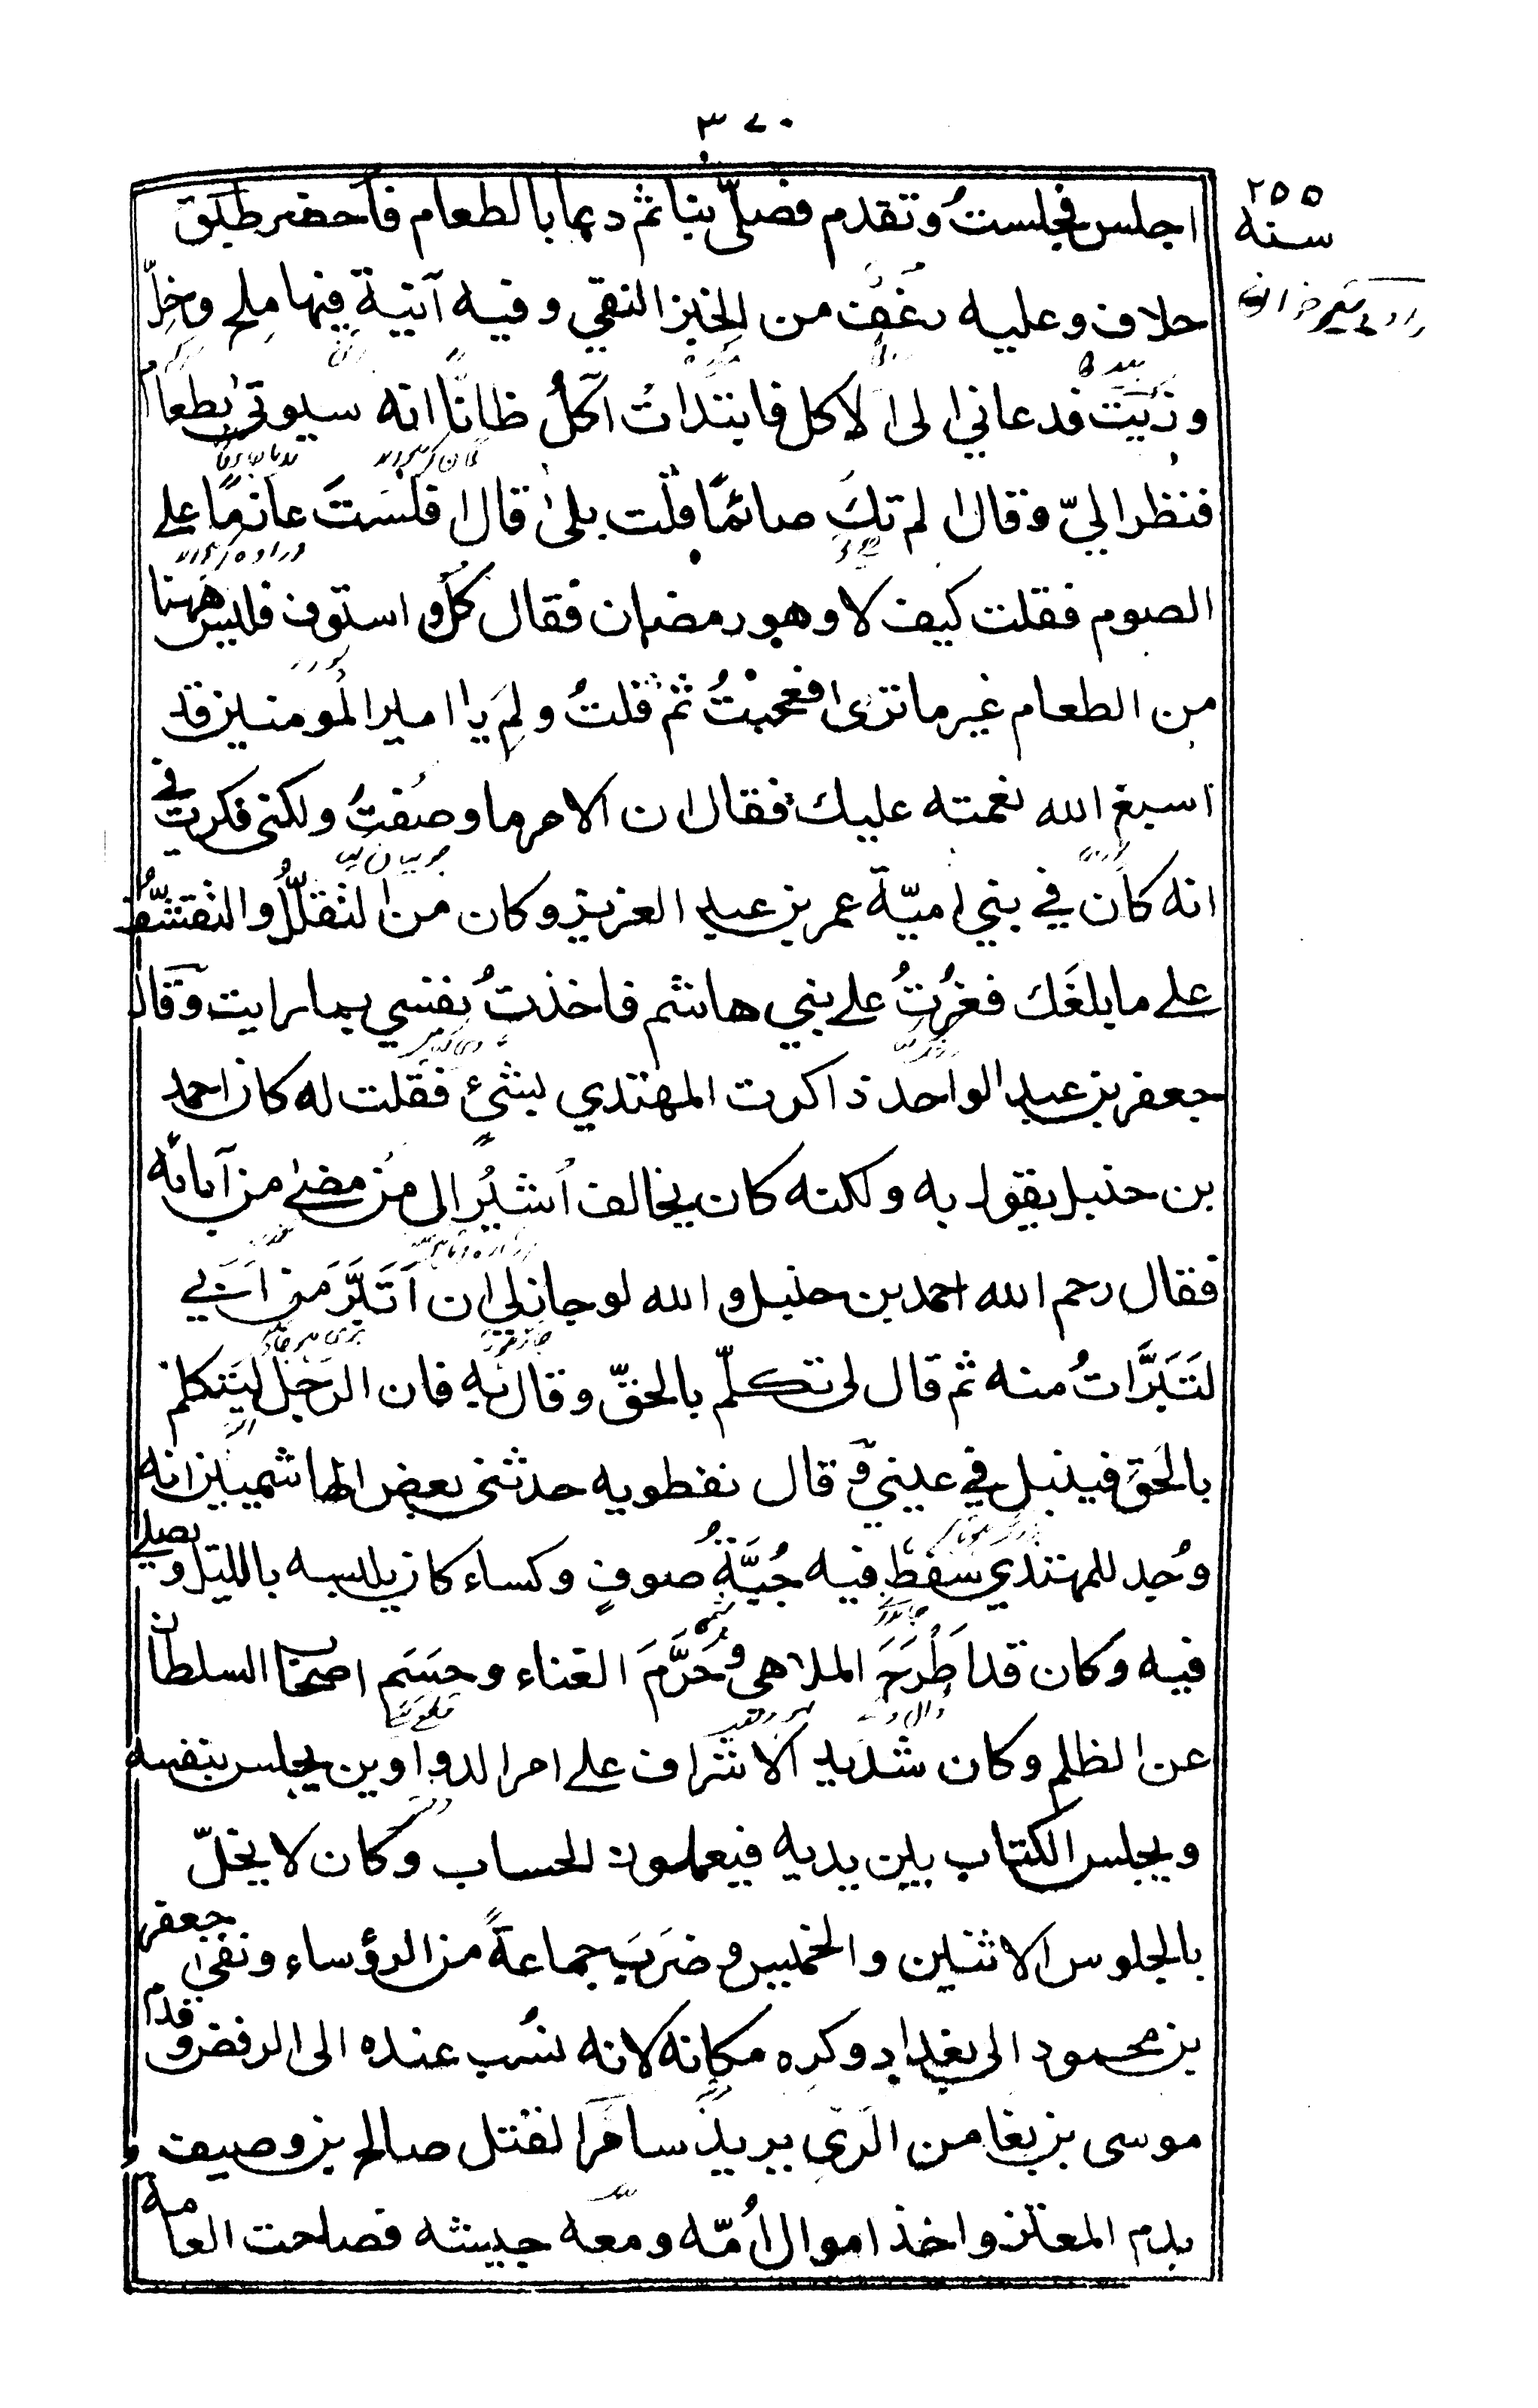 ٣٧٠
٢٥٥
سنة
اجلس فجلستُ وتقدم فصلّى بنا ثم دعا بالطعام فأحضر طبق
خلاف وعليه رغف من الخبز النقي وفيه آنية فيها ملح وخلّ
وزيت فدعاني الى الاكل فابتدأت آكلُ ظانًّا انه سيوتى بطعام
فنظر اليّ وقال الم تك صائمًا قلت بلى قال افلستَ عازمًا على
الصوم فقلت كيف لا وهو رمضان فقال كل واستوف فليس ههنا
من الطعام غير ما ترى فعجبتُ ثم قلتُ ولِمَ يا امير المومنين قد
اسبغ الله نعمته عليك فقال ان الامر ما وصفتُ ولكني فكرت في
انه كان في بني اميّة عمر بن عبد العزيز وكان من التقلّل والتقشّف
على ما بلغَك فغرتُ على بني هاشم فاخذتُ نفسي بما رايت وقال
جعفر بن عبد الواحد ذاكرت المهتدي بشئ فقلت له كان احمد
بن حنبل يقول به ولكنه كان يخالف اُشيرُ الى من مضى من آبائه
فقال رحم الله احمد بن حنبل والله لو جاز لي ان اَتَبَرَّ من ابي
لَتَبَرَّاتُ منه ثم قال لي تكلّم بالحقّ وقال به فان الرجل ليتكلم
بالحق فينبل في عيني و قال نفطويه حدثني بعض الهاشميين انه
وُجد للمهتدي سفط فيه جُبَّةُ صوفٍ وكساء كان يلبسه بالليل ويصلي
فيه وكان قد اطَّرَحَ الملاهي وحَرَّمَ الغناء وحسَم اصحاب السلطان
عن الظلم وكان شديد الاشراف على امر الدواوين يجلس بنفسه
ويجلس الكتاب بين يديه فيعملون الحساب وكان لا يخلّ
بالجلوس الاثنين والخميس وضرَبَ جماعةً من الرؤساء ونفى جعفر
بن محمود الى بغداد وكره مكانه لانه نُسب عنده الى الرفض وقدم
موسى بن بغا من الري يريد سامرا لقتل صالح بن وصيف
بدم المعتز واخذ اموال اُمّه ومعه جيشه فصاحت العامة